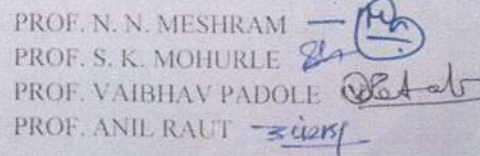 PROF. N. N. MESHRAM
PROF. S. K. MOHURLE
PROF. VAIBHAV PADOLE
PROF. ANIL RAUT